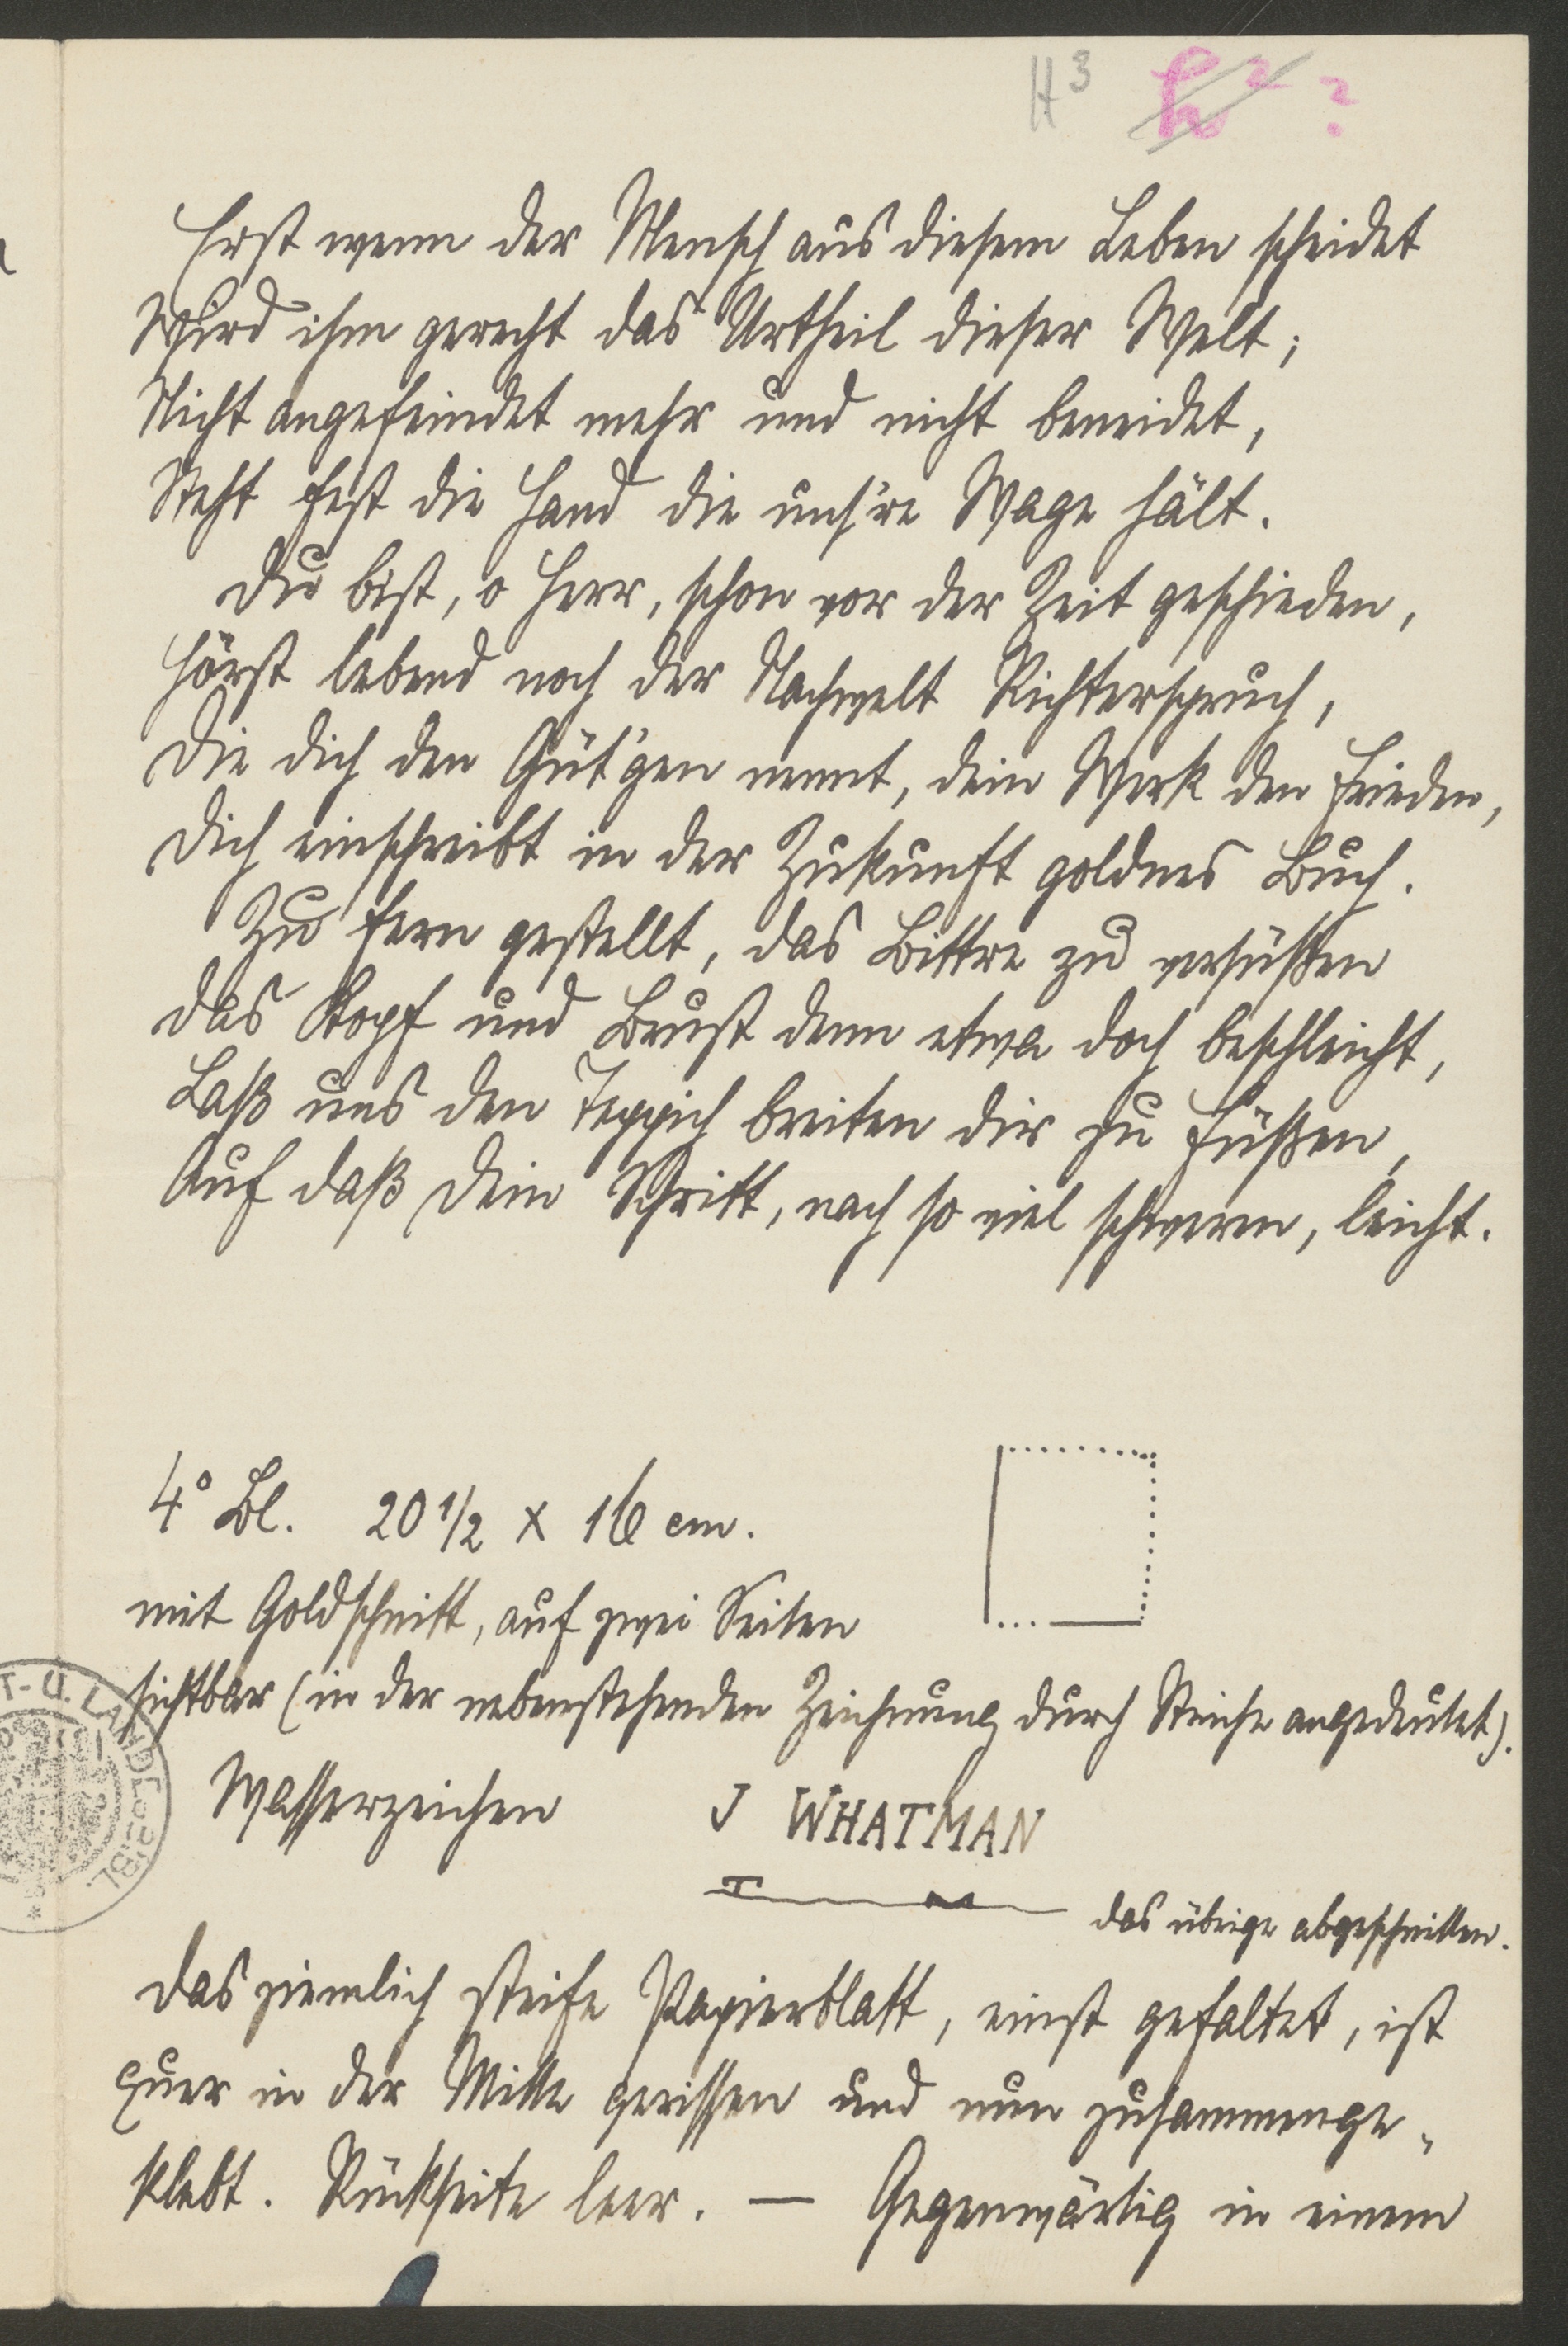 H³ h² ?
Erst wenn der Mensch aus diesem Leben scheidet
Wird ihm gerecht das Urtheil dieser Welt;
Nicht angefeindet mehr und nicht beneidet,
Steht fest die Hand die uns're Wage hält.
Du bist, o Herr, schon vor der Zeit geschieden,
Hörst lebend noch der Nachwelt Richterspruch,
Die dich den Güt'gen nennt, dein Werk den Frieden,
Dich einschreibt in der Zukunft goldnes Buch.
Zu fern gestellt, das Bittre zu versüßen
Das Kopf und Brust denn etwa doch beschleicht,
Laß uns den Teppich breiten dir zu Füßen,
Auf daß dein Schritt, nach so viel schweren, leicht.
4° Bl. 20 1/2 x 16 cm.
mit Goldschnitt, auf zwei Seiten
sichtbar (in der nebenstehenden Zeichnung durch Striche angedeutet).
Wasserzeichen J WHATMAN
das übrige abgeschnitten.
Das ziemlich steife Papierblatt, einst gefaltet, ist
quer in der Mitte gerissen und nun zusammenge„
klebt. Rückseite leer. — Gegenwärtig in einem
T- U. LANDESBIBL.